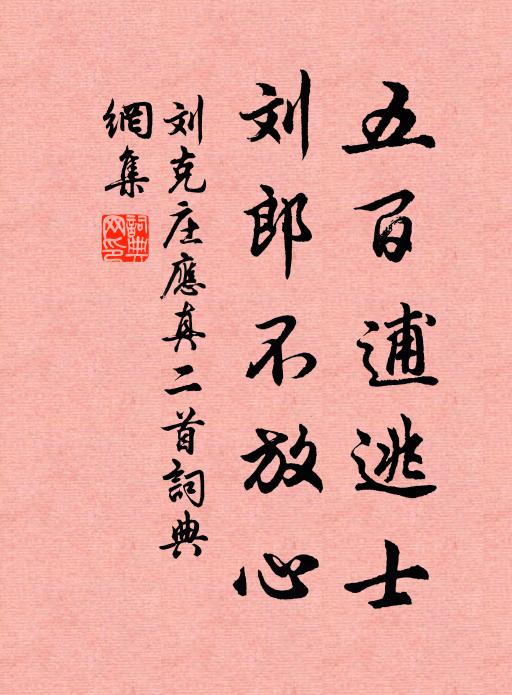 五百逋逃士
刘郎不放心
刘克庄應真二首詞典
網集
詞典网印